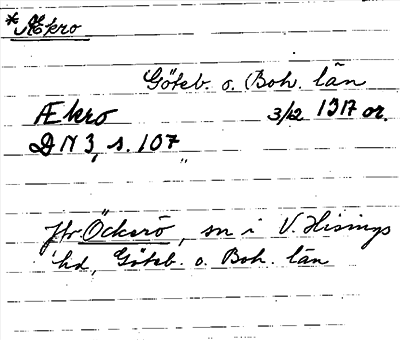 *Ækro
Göteb. o. Boh. län
Ækro 3/12 1317 or.
DN 3, s. 107
jfr Öckerö, sn i V. Hisings
hd, Göteb. o. Boh. län